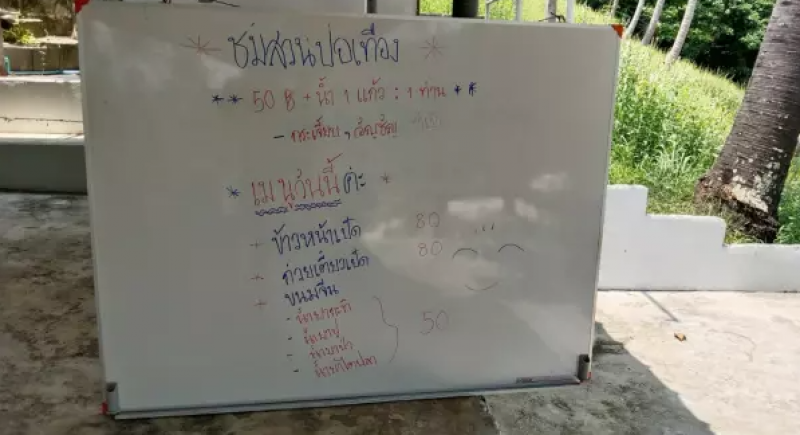 * ชมสวนปอเทือง *
** 50 ฿ + น้ำ 1 แก้ว : 1 ท่าน **
- กระเจี๊ยบ , อัญชัญ
* เมนูวันนี้ค่ะ *
+ ข้าวหน้าเป็ด 80
+ ก๋วยเตี๋ยวเป็ด 80
+ ขนมจีน
- น้ำยากะทิ
- น้ำยาปู
- น้ำยาป่า
- น้ำยาไตปลา
50